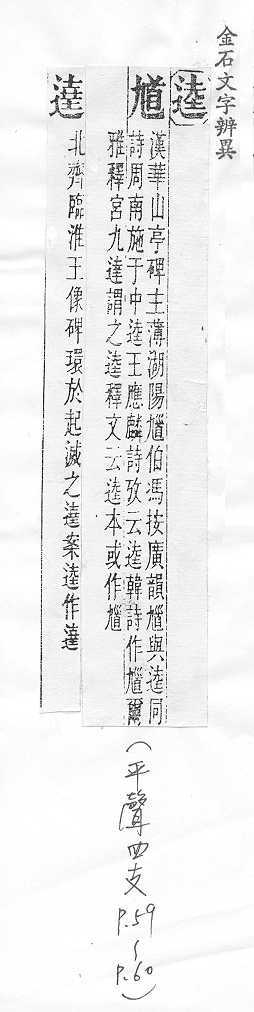 金石文字辨異
逵
馗
漢華山亭碑主薄湖陽馗伯馮按廣韻馗與逵同
詩周南施于中逵王應麟詩攷云逵韓詩作馗爾
雅釋宮九達謂之逵釋文云逵本或作馗
逹
北齊臨淮王像碑環於起滅之逹案逵作逹
(平聲四支
P.59
~
P.60)